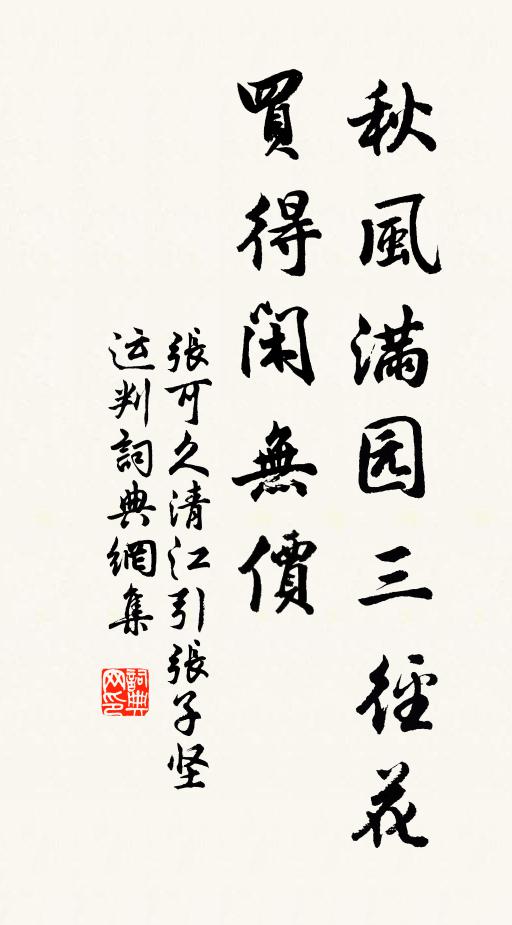 秋風满园三徑花
買得閑無價
張可久清江引張子坚
运判詞典網集
詞典网印